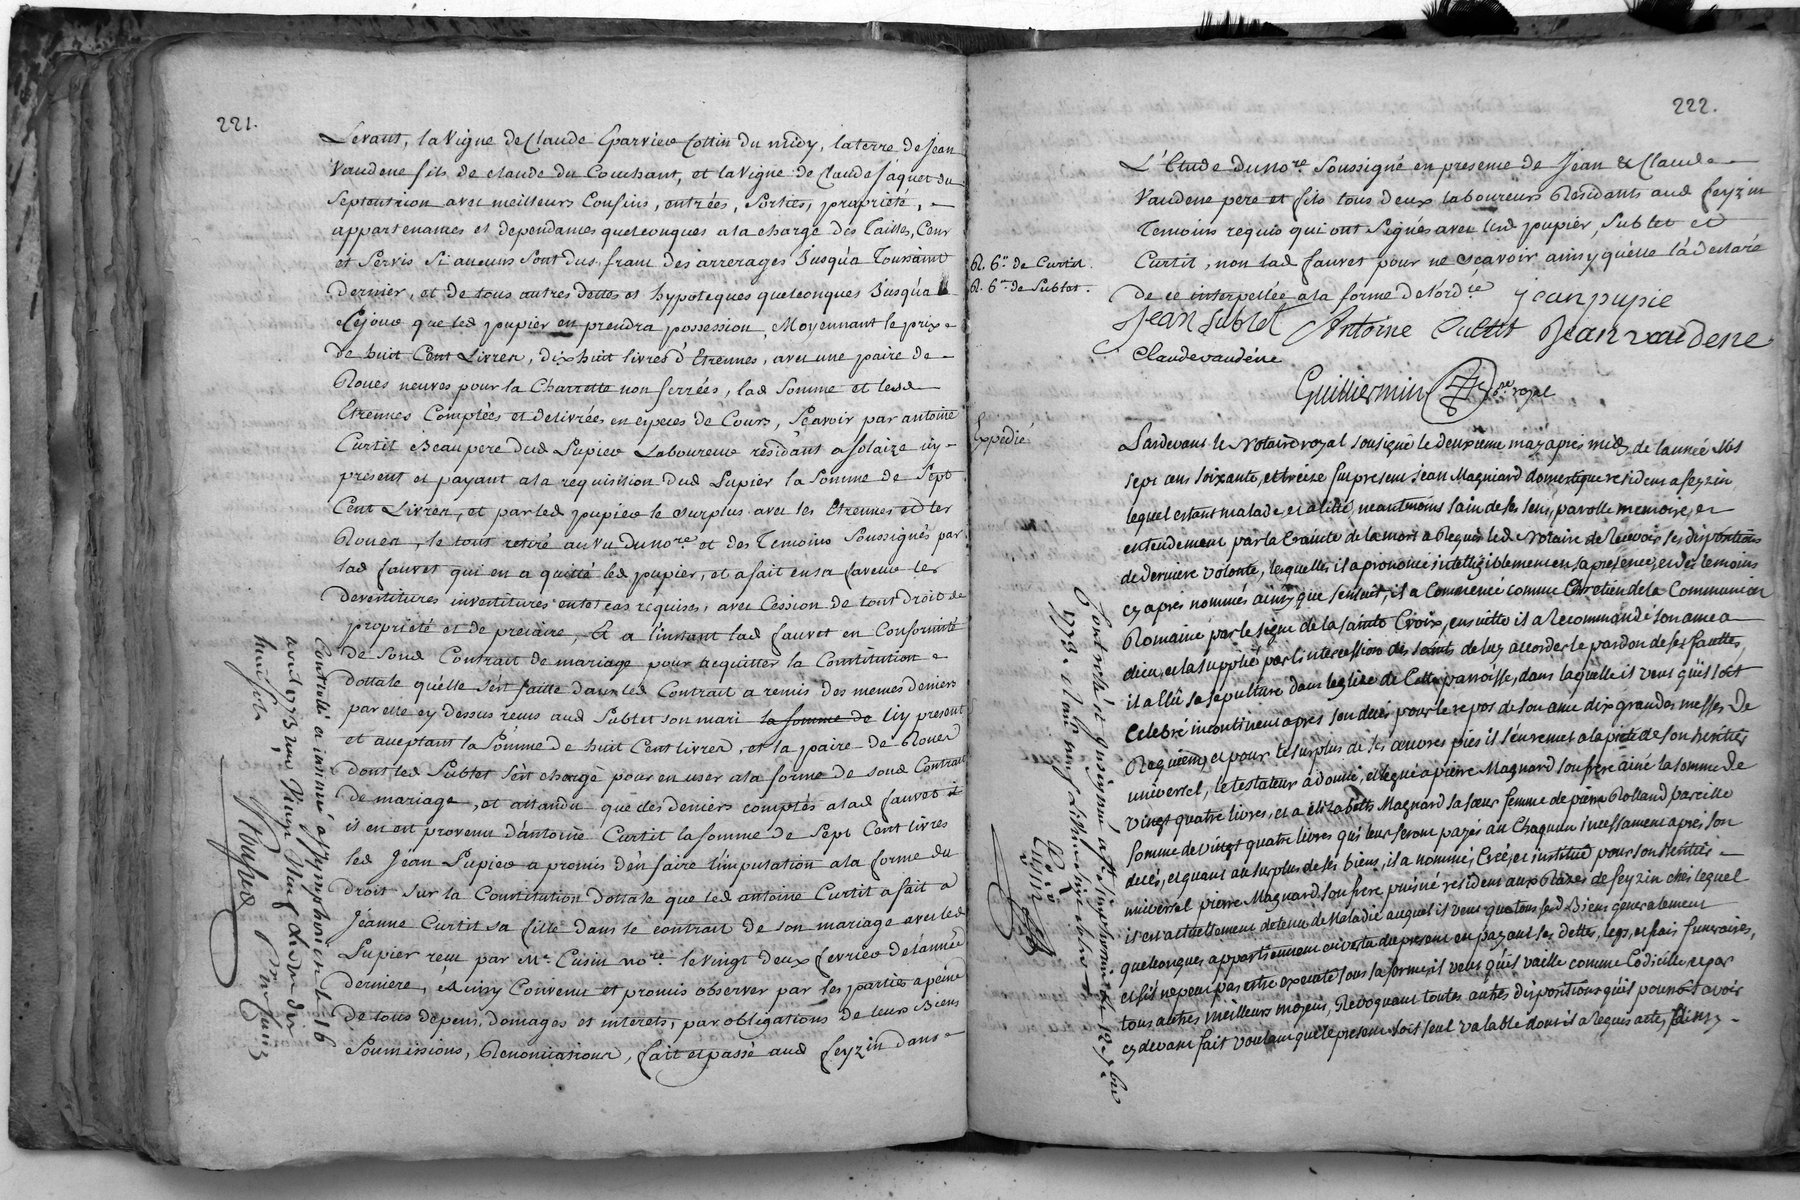 221.
Levant, la Vigne de Claude Eparvier Cottin du midy, la terre de Jean
Vaudene fils de claude du Couchant, et la Vigne de Claude Jaquet du
Septentrion avec meilleurs Confins, entrées, Sorties, proprieté,
appartenances et dependances quelconques a la charge des Tailles, Cens
et Servis Si aucuns Sont dus, franc des arrerages Jusqu'a Toussaint
dernier, et de tous autres dettes et hypoteques quelconques Jusqu'a
cejour que led pupier en prendra possession, Moyennant le prix
de huit Cent Livres, dix huit livres d'Etrennes, avec une paire de
Roues neuves pour la Charrette non ferrées, lad Somme et lesd
Etrennes Comptées et delivrées en especes de Cours, Sçavoir par antoine
Curtit Beaupere dud Pupier Laboureur résidant a Solaize icy
present et payant a la requisition dud Pupier la Somme de Sept
Cent Livres, et par led pupier le Surplus avec les Etrennes et les
Roues, le tout retiré au vu du nore et des Temoins Soussignés par
lad fauvet qui en a quitté led pupier, et a fait en sa faveur les
devestitures investitures en tel cas réquises, avec Cession de tout droit de
proprieté et de precaire, Et a l'instant lad fauvet en Conformité
de Soud Contrait de mariage pour acquitter la Constitution
dottale qu'elle s'ést faitte dans led Contrait a remis des memes deniers
par elle cy dessus recus aud Sublet son mari la somme de Icy present
et aceptant la Somme de huit Cent livres, et la paire de Roues
dont led Sublet s'ést chargé pour en user a la forme de soud Contrait
de mariage, et attandu que des deniers comptés a lad fauvet il
il en est provenu d'antoine Curtit la somme de Sept Cent livres
led Jean Pupier a promis d'en faire l'imputation a la forme du
droit sur la Constitution dottale que led antoine Curtit a fait a
Jéanne Curtit sa fille dans le contrait de son mariage avec led
Pupier recu par Me Cusin nore le vingt deux fevrier de l'année
derniere, Ainsy Convenu et promis observer par les parties a peine
de tous depens, domages et interets, par obligations de leurs Biens
Soumissions, Renonciations, fait et passé aud feyzin dans
Controllé et insinué a St Symphorien le 16
avril 1773 recu Vingt Neuf Livres dix
huit sols
222.
L'Etude du nore Soussigné en presence de Jean & Claude
Vaudene pere et fils tous deux laboureurs Résidants aud feyzin
Temoins requis qui ont Signés avec led pupier, Sublet et
Curtit, non lad fauvet pour ne Sçavoir ainsy qu'elle l'a declaré
de ce interpellée a la forme de l'ordce jean pupie
Jean Sublet Antoine Curtit Jean vaudene
Claude vaudéne
Guilliermin nore royal
Pl. 6n de Curtit.
Pl. 6n de Sublet.
Expedié
Pardevant le Notaire royal sousigné le deuxieme may apres midy de lannée Mil
sept cens soixante, et treize fut present Jean Magniard domestique resident a feyzin
lequel estant malade et alitté, neantmoins sain de ses sens, parolle memoire, et
entendement par la Crainte de la mort a Requis led Notaire de Recevoir ses dispositions
de derniere volonté, lesquelles il a prononcé intelligiblement en sa presence, et des temoins
cy apres nommés ainsy que s'ensuit, il a Commencé comme Chretien de la Communion
Romaine par le signe de la sainte Croix, en suitte il a Recommandé son ame a
dieu, et la supplié par l'intercession des saints de luy accorder le pardon de ses fauttes,
il a Elû sa sepulture dans leglise de Cette parroisse, dans laquelle il veut qu'il soit
Celebré incontinent apres son decés pour le repos de son ame dix grandes messes De
Requiem, et pour le surplus de ses œuvres pies il s'en remet a la pieté de son heritier
universel, le testateur a donné, et legué a pierre Magnard son frere ainé la somme de
Vingt quatre livres, et a elizabeth Magnard sa sœur femme de pierre Rolland pareille
somme de vingt quatre livres qui leur seront payés a un Chaqu'un incessament apres son
decés, et quant au surplus de ses biens, il a nommé, Creé, et institué pour son heritier
universel pierre Magnard son frere puisné resident aux Razes de feyzin ches lequel
il est actuellement detenu de Maladie auquel il veut que tous sesd Biens generalement
quelconques appartiennent en vertu du present en payant ses dettes, legs, et frais funeraires,
et s'il ne peut pas estre executé sous sa forme il veut qu'il vaille comme Codicille et par
tous autres meilleurs moyens, Revoquant toutes autres dispositions qu'il pourroit avoir
cy devant fait voulant que le present soit seul valable dont il a Requis acte, fait
Controlé et insinué a St Simphorien le 12 xbre
1773.